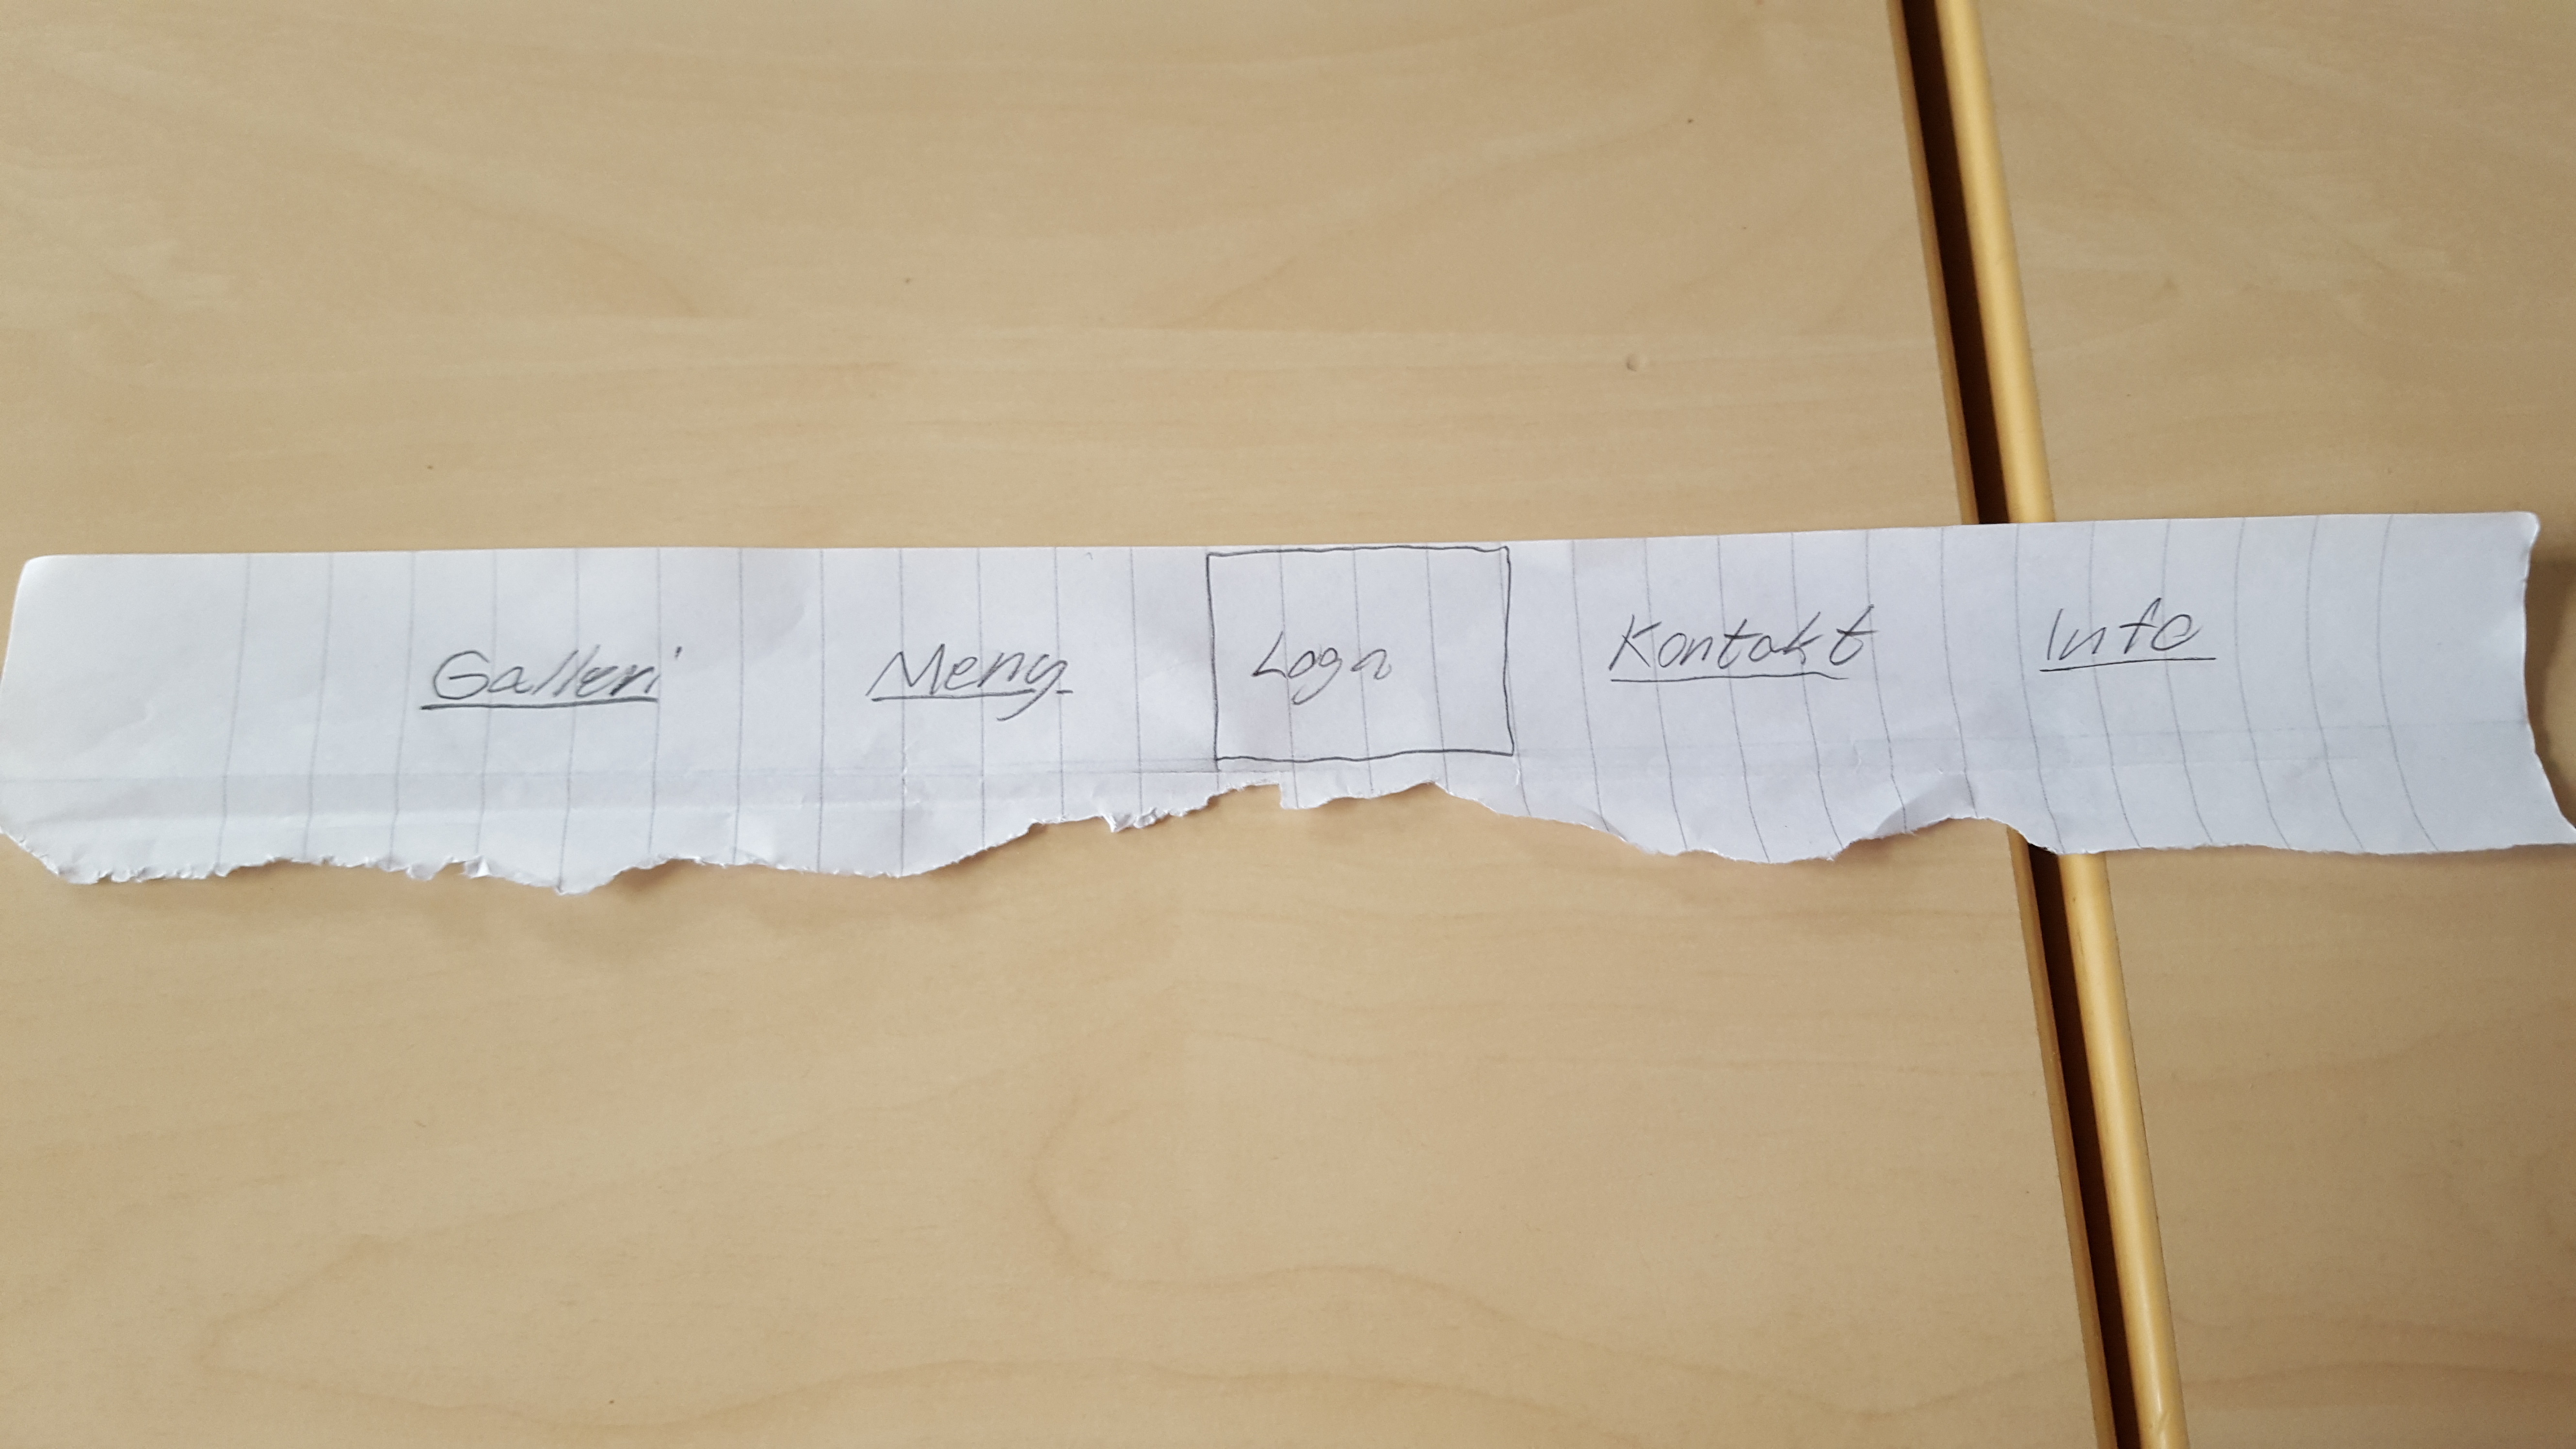 Galleri Meny Logo Kontakt Info